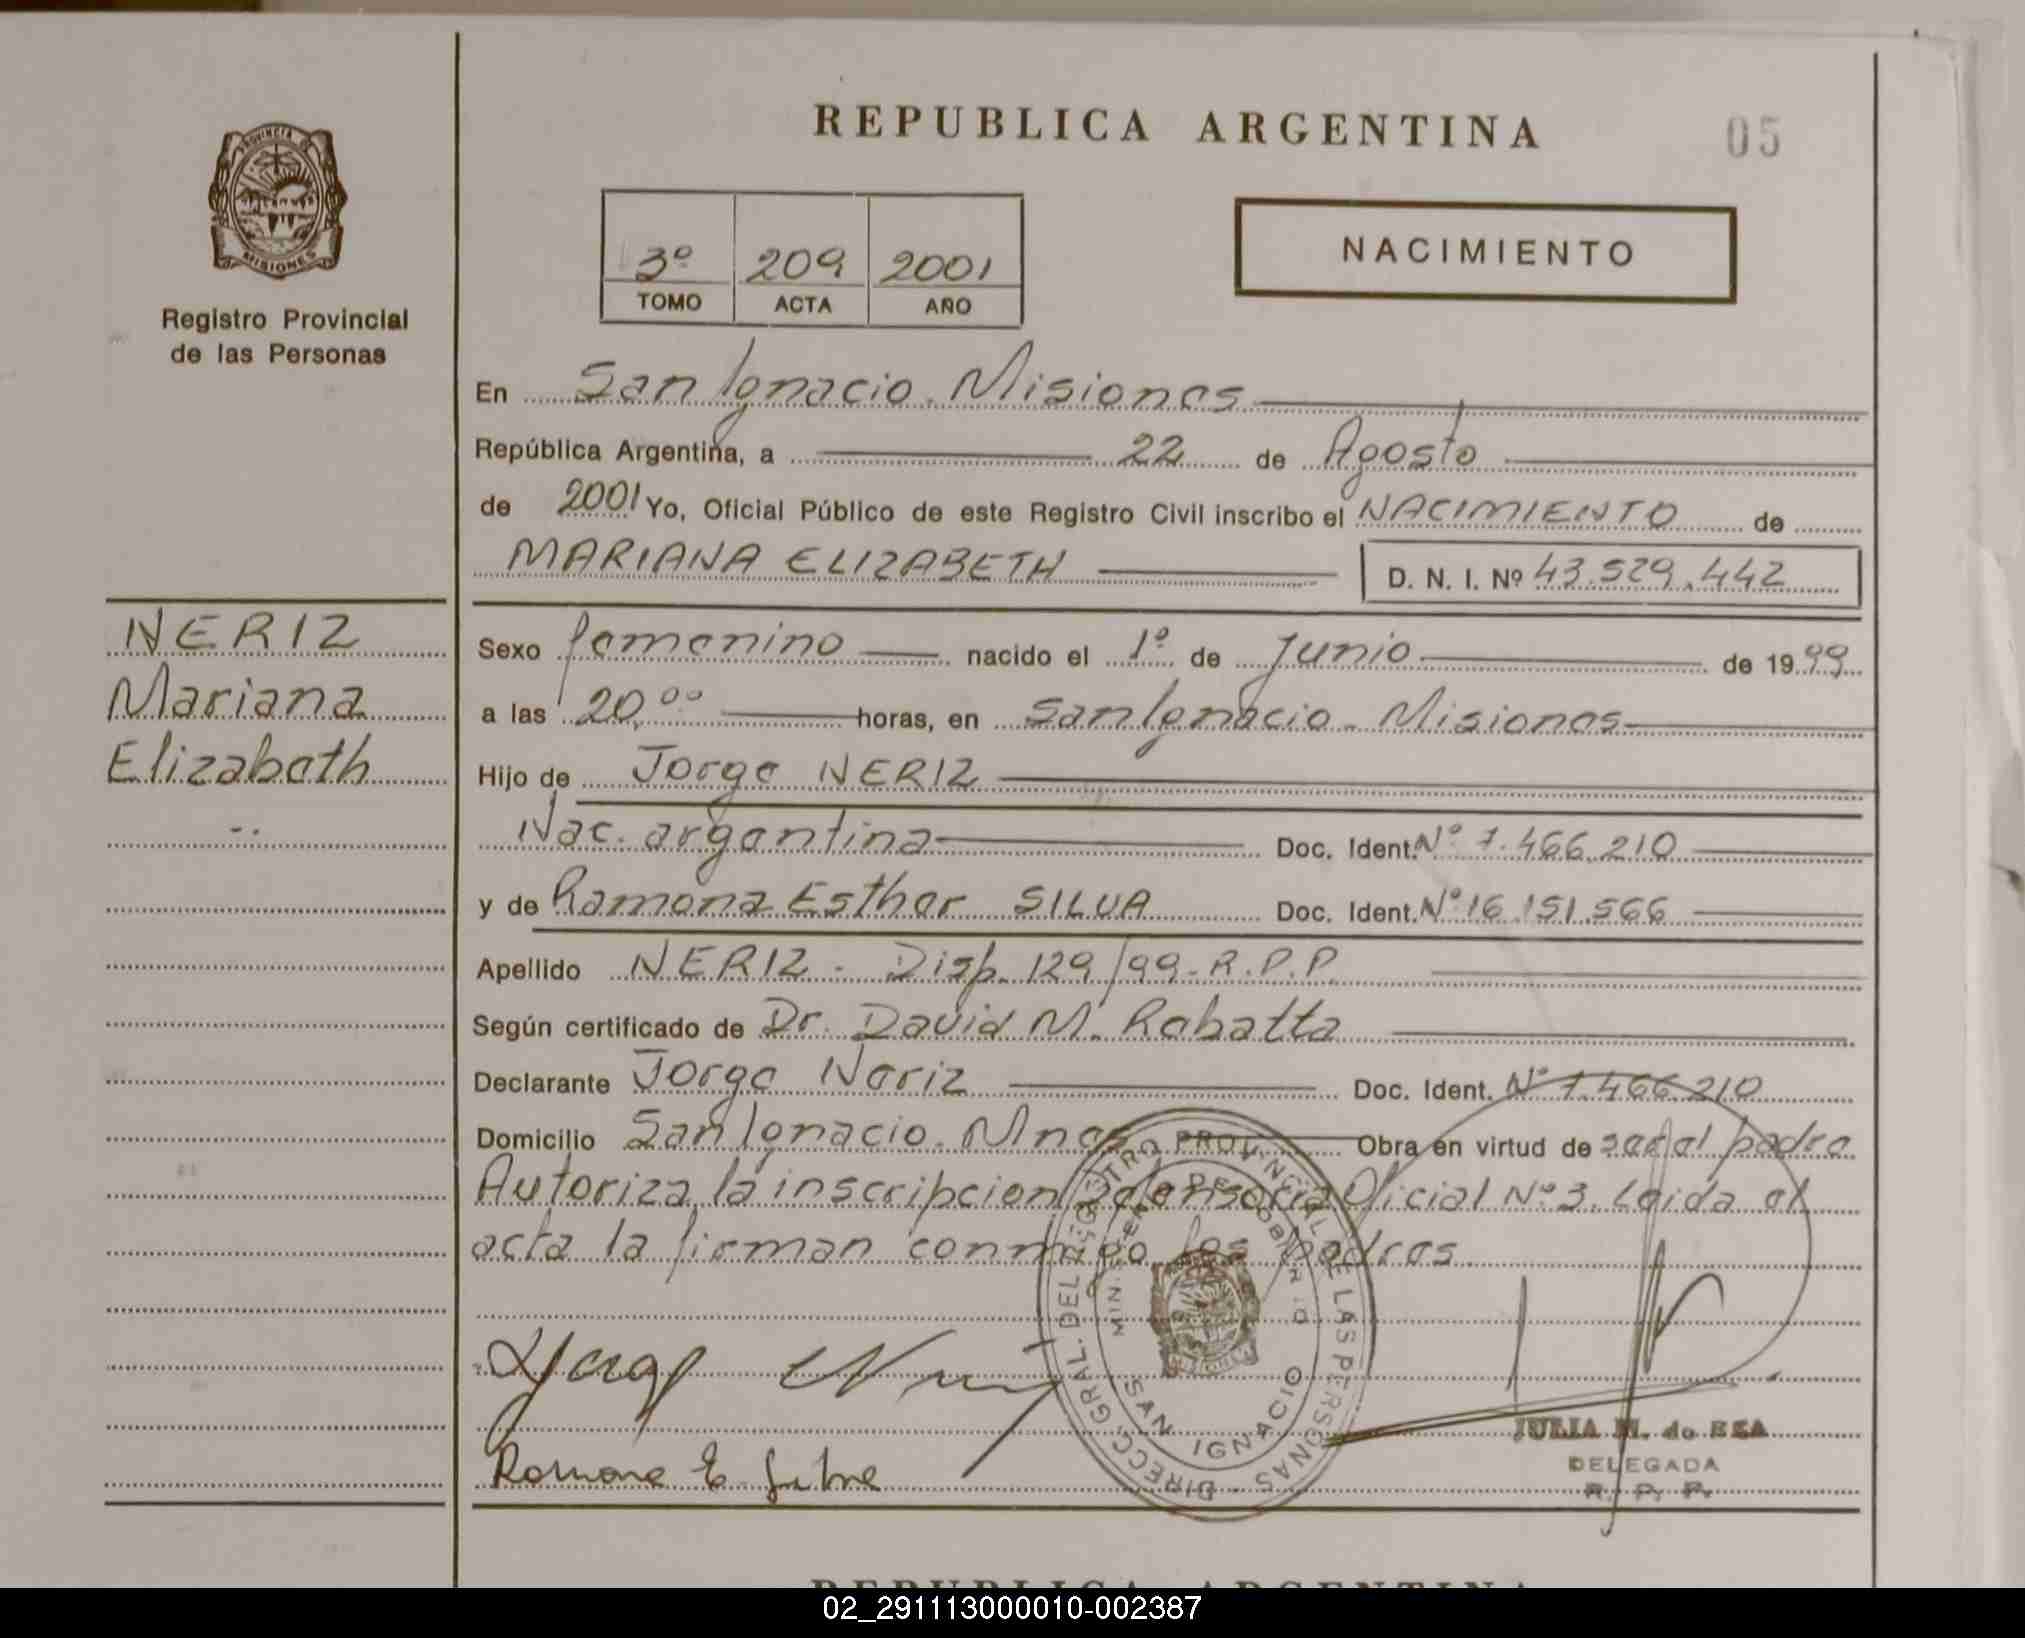 REPUBLICA ARGENTINA
05
PROVINCIA D
MISIONES
Registro Provincial
de las Personas
3º 209 2001
TOMO ACTA AÑO
NACIMIENTO
En San Ignacio. Misiones
República Argentina, a 22 de Agosto
de 2001 Yo, Oficial Público de este Registro Civil inscribo el NACIMIENTO de
MARIANA ELIZABETH D. N. I. Nº 43.529.442
NERIZ
Mariana
Elizabeth
Sexo femenino nacido el 1º de Junio de 1999
a las 20,00 horas, en San Ignacio - Misiones
Hijo de Jorge NERIZ
Nac. argentina Doc. Ident. Nº 7.466.210
y de Ramona Esther SILVA Doc. Ident. Nº 16.151.566
Apellido NERIZ - Disp. 129/99- R.P.P.
Según certificado de Dr. David M. Rabatta
Declarante Jorge Neriz Doc. Ident. Nº 7.466.210
Domicilio San Ignacio. Mnes Obra en virtud de ser el padre
Autoriza la inscripcion Asensoria Oficial Nº 3. Leida el
acta la firman conmigo los padres
DIRECC. GRAL. DEL REGISTRO PROVINCIAL DE LAS PERSONAS
MINISTERIO DE GOBIERNO
SAN IGNACIO
Ramona E. Silva
JULIA M. de REA
DELEGADA
R. P. P.
REPUBLICA ARGENTINA
02_291113000010-002387